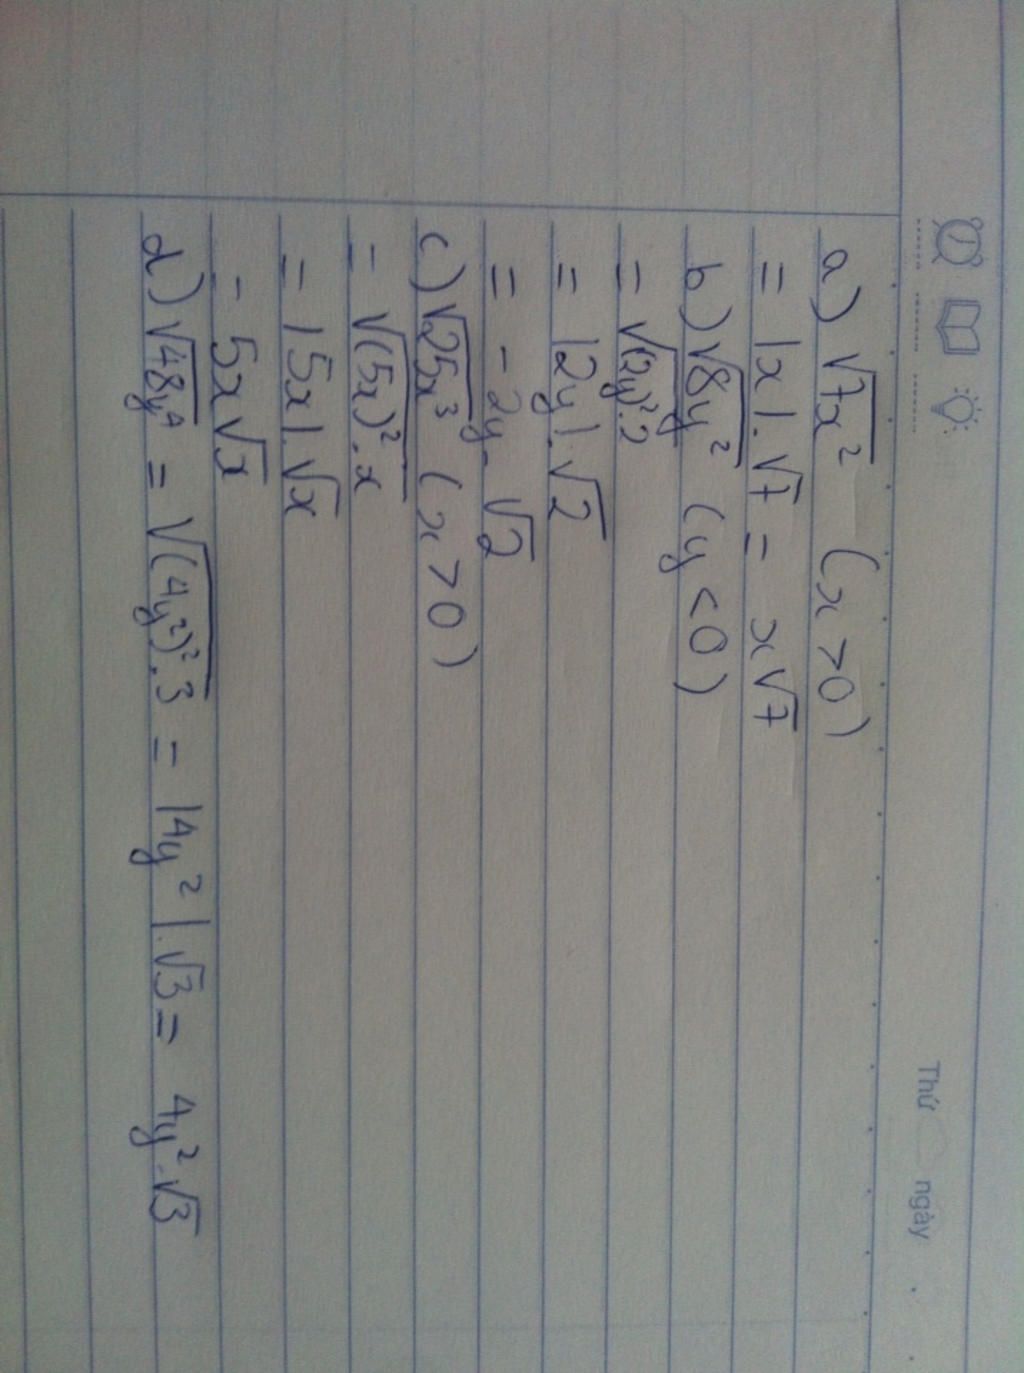 Thứ ngày
a) √7x² (x > 0)
= |x|.√7 = x√7
b) √8y² (y < 0)
= √(2y)².2
= |2y|.√2
= -2y.√2
c) √25x³ (x > 0)
= √(5x)².x
= |5x|.√x
= 5x√x
d) √48y⁴ = √(4y²)².3 = |4y²|.√3 = 4y².√3